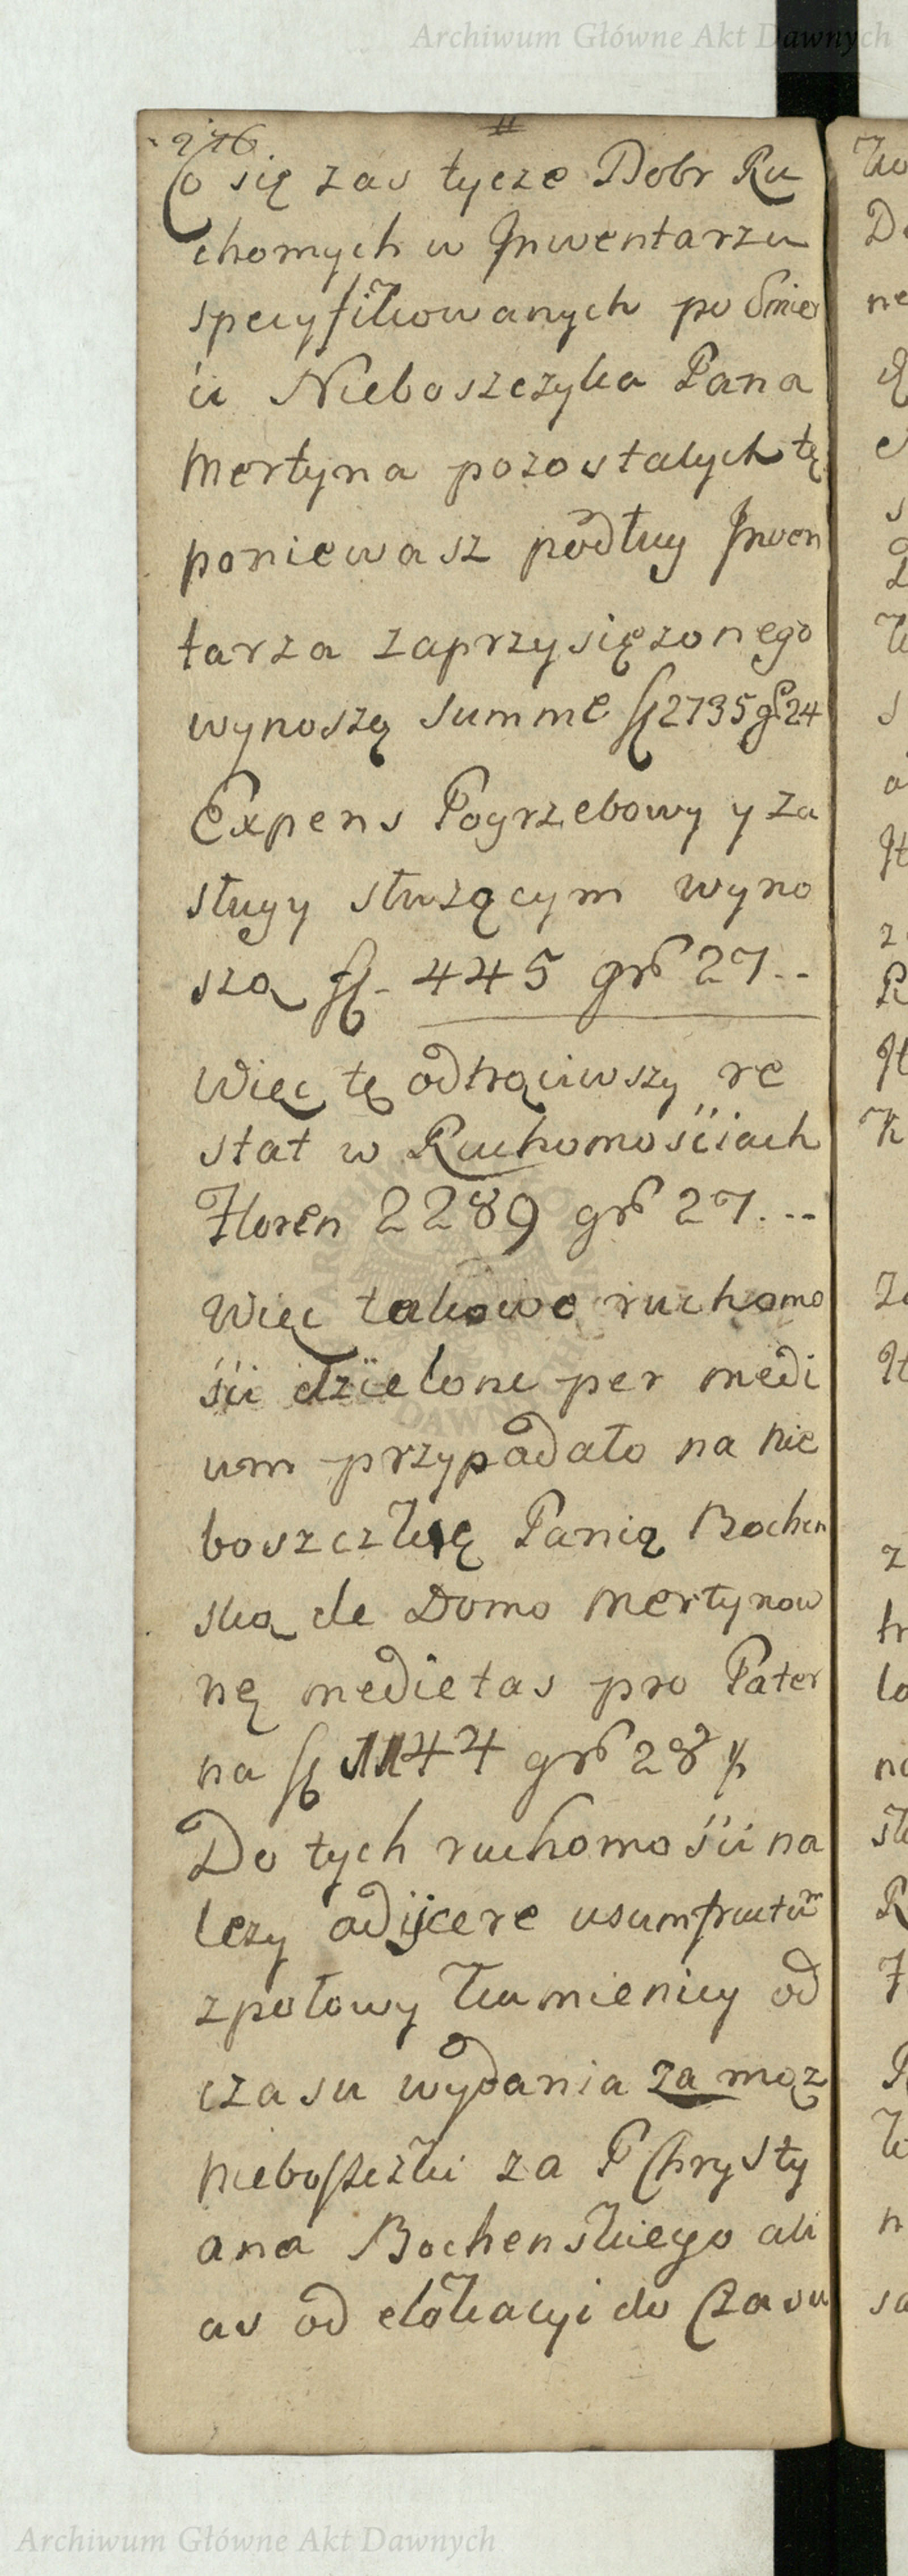 Archiwum Główne Akt Dawnych
276
Co się zas tycze Dobr Ru
chomych w Inwentarzu
specyfikowanych po Smier
ci Nieboszczyka Pana
Mertyna pozostalych tę
poniewasz podług Inwen
tarza zaprzysięzonego
wynoszą Summe fl 2735 gr 24
Expens Pogrzebowy y za
sługy słuzącym wyno
szą fl. 445 gr 27 --
Więc tę odtrąciwszy re
stat w Ruchomościach
Floren 2289 gr 27. --
Więc takowe ruchomo
ści dzielone per medi
um przypadało na nie
boszczkę Panią Bochen
ską de Domo Mertynow
nę medietas pro Pater
na fl 1144 gr 28
Do tych ruchomości na
lezy adijcere usumfructum
zpołowy kamienicy od
czasu wydania za mąz
Nieboszczki za P Chrysty
ana Bochenskiego ali
as od elokacyi do Czasu
Archiwum Główne Akt Dawnych